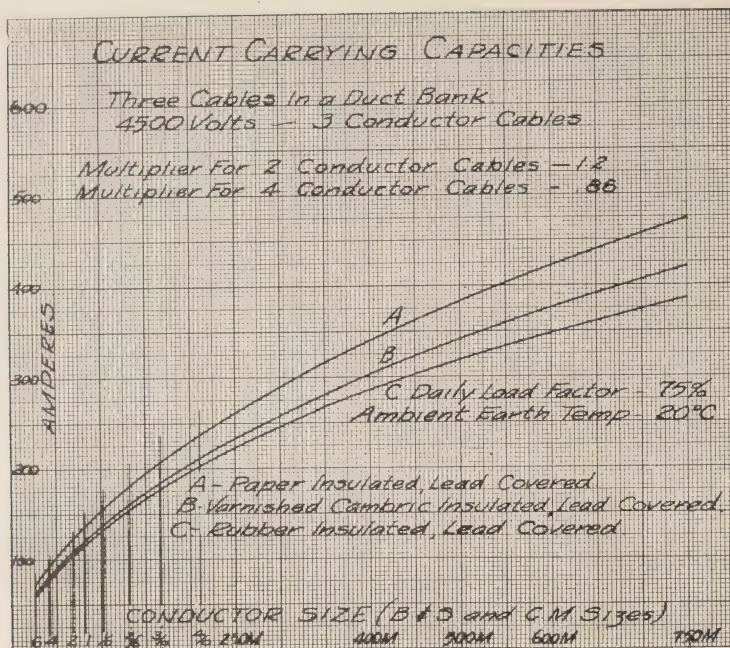 CURRENT CARRYING CAPACITIES
600
Three Cables In a Duct Bank
4500 Volts — 3 Conductor Cables
Multiplier For 2 Conductor Cables — 1.2
500
Multiplier For 4 Conductor Cables - .86
400
AMPERES
A
B
300
C Daily Load Factor - 75%
Ambient Earth Temp - 20°C
200
A- Paper Insulated, Lead Covered
B- Varnished Cambric Insulated, Lead Covered.
C- Rubber Insulated, Lead Covered
100
CONDUCTOR SIZE (B & S and C M Sizes)
6 4 2 1 250M 400M 500M 600M 750M